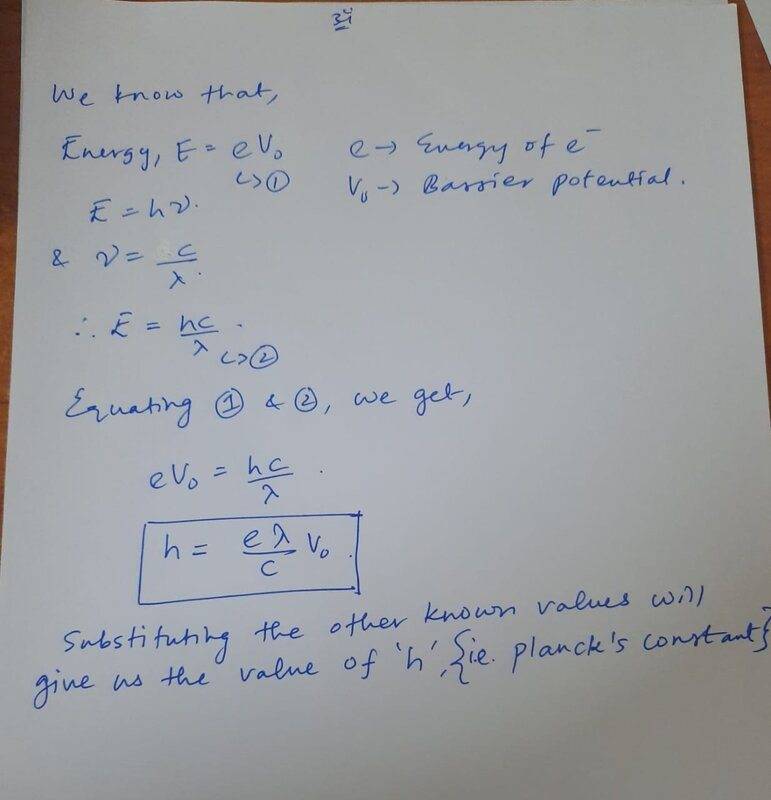 ॐ
We know that,
Energy, E = eV₀ e → Energy of e⁻
↳① V₀ → Barrier potential.
E = hν.
& ν = c/λ.
∴ E = hc/λ.
↳②
Equating ① & ②, we get,
eV₀ = hc/λ.
h = eλ/c V₀.
Substituting the other known values will
give us the value of 'h', {ie. planck's constant}